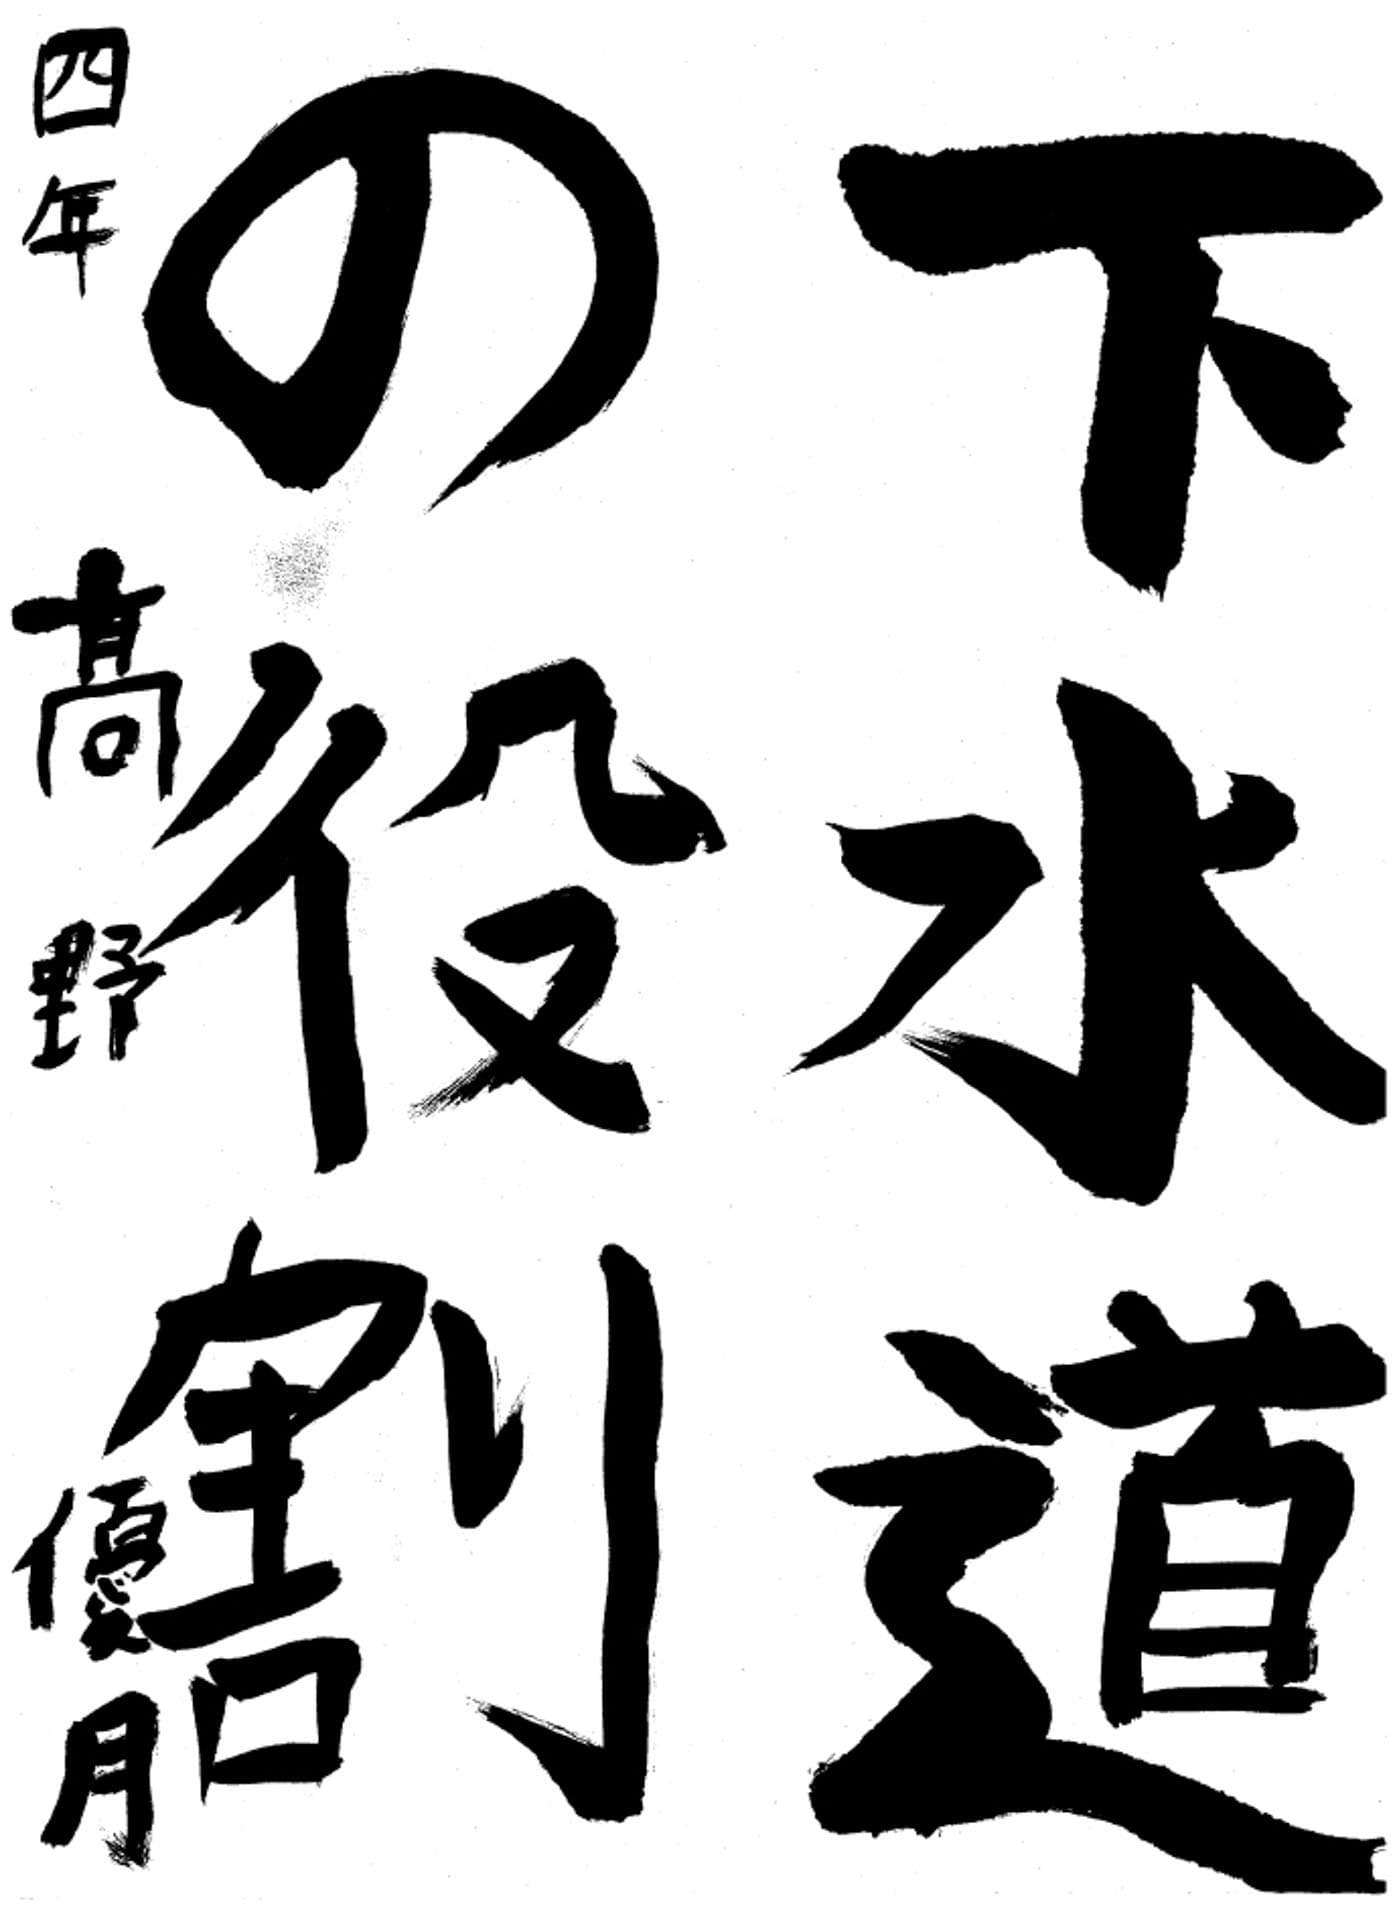 下水道
の役割
四年 髙野優月